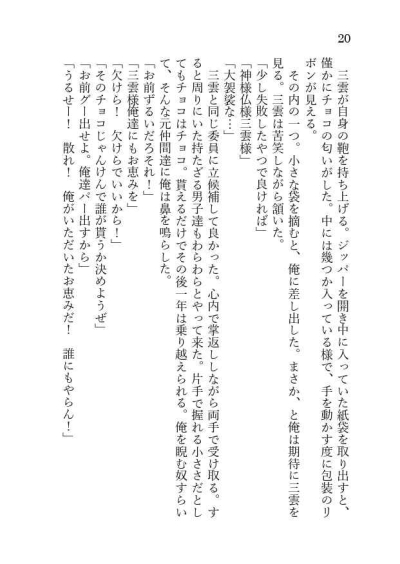 20
三雲が自身の鞄を持ち上げる。ジッパーを開き中に入っていた紙袋を取り出すと、
僅かにチョコの匂いがした。中には幾つか入っている様で、手を動かす度に包装のリ
ボンが見える。
その内の一つ。小さな袋を摘むと、俺に差し出した。まさか、と俺は期待に三雲を
見る。三雲は苦笑しながら頷いた。
「少し失敗したやつで良ければ」
「神様仏様三雲様」
「大袈裟な…」
三雲と同じ委員に立候補して良かった。心内で掌返ししながら両手で受け取る。す
ると周りにいた持たざる男子達もわらわらとやって来た。片手で握れる小ささだとし
てもチョコはチョコ。貰えるだけでその後一年は乗り越えられる。俺を睨む奴すらい
て、そんな元仲間達に俺は鼻を鳴らした。
「お前ずるいだろそれ！」
「三雲様俺達にもお恵みを」
「欠けら！　欠けらでいいから！」
「そのチョコじゃんけんで誰が貰うか決めようぜ」
「お前グー出せよ。俺達パー出すから」
「うるせー！　散れ！　俺がいただいたお恵みだ！　誰にもやらん！」